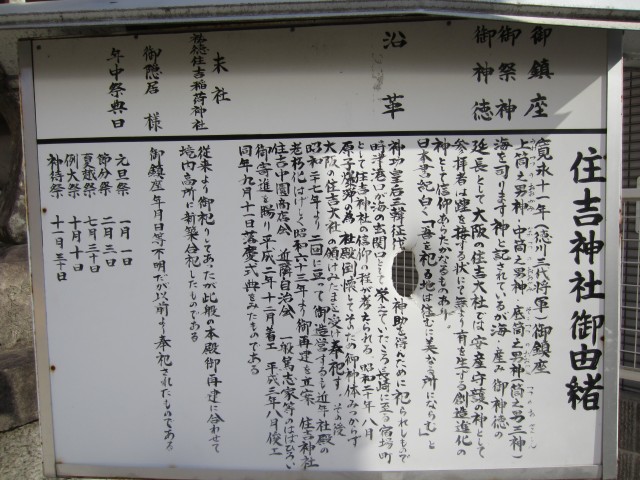 住吉神社御由緒
御鎮座
寛永十一年(徳川三代将軍)御鎮座
御祭神
上筒之男神・中筒之男神・底筒之男神(筒之男三神)
海を司ります神と記されているが海・産み御神徳の
御神徳
延長として大阪の住吉大社では安産守護の神として
参拝者は踵を接する状にて無より有を生ずる創造進化の
神として信仰あらたかなるものあり
日本書紀に曰く「吾を祀る地は住むに美き所にならむ」と
沿革
神功皇后三韓征伐 神助を得んために祀られしもので
時津港は海の玄関口として栄えていたころ長崎に至る宿場町
として住吉神社の信仰の程が考えられる 昭和二十年八月
原子爆弾の為 社殿倒壊して 御神体みつからず
大阪の住吉大社の御けみたまを受け奉祀す その後
昭和二十七年より二回に亘って御造営するも近年社殿の
老朽化はげしく昭和六十三年より御再建を立案 住吉神社
住吉中園商店会 近隣自治会 一般篤志家等の
御寄進を賜り平成二年十一月着工 平成三年八月竣工
同年九月十一日落慶式典をみたものである
末社
松徳住吉稲荷神社
従来より御祀りしてあったが此般の本殿御再建に合わせて
境内高所に新築合祀したものである
御隠居様
御鎮座年月日等不明だが以前より奉祀されたものである
年中祭典日
元旦祭 一月一日
節分祭 二月三日
夏越祭 七月三十日
例大祭 十月十日
神待祭 十一月三十日